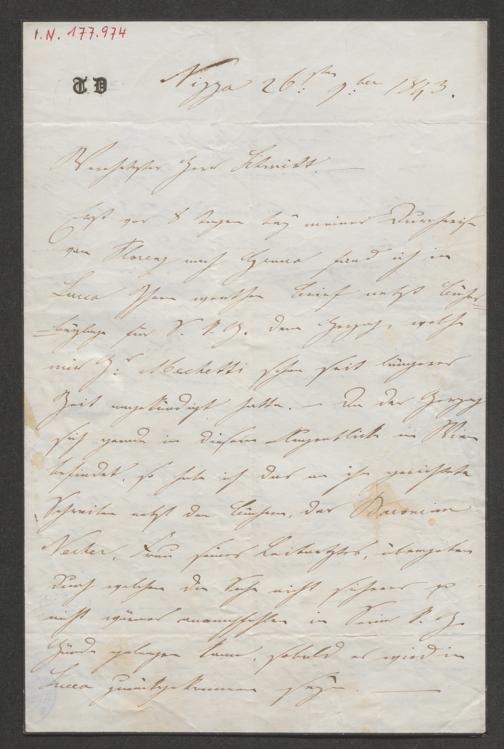 I.N. 177.974
T D
Nizza 26ten 9ber 1843.
Verehrtester Herr Schmidt. —
Erst vor 8 Tagen bey meiner Durchreise
von Florenz nach Genua fand ich in
Lucca Ihren werthen Brief nebst
für S. K. H. dem Herzog, welche
mir Hr Mechetti schon seit längerer
Zeit angekündigt hatte. — Da der Herzog
sich gerade in diesem Augenblicke in Wien
befindet, so habe ich das an ihn gerichtete
Schreiben nebst den der Baronin
Necker, Frau seines übergeben
durch welchen die Sache nicht sicherer u
nicht wärmer anempfohlen in Seine K. H.
Hände gelangen kann, sobald er wieder in
Lucca zurückgekommen seyn —